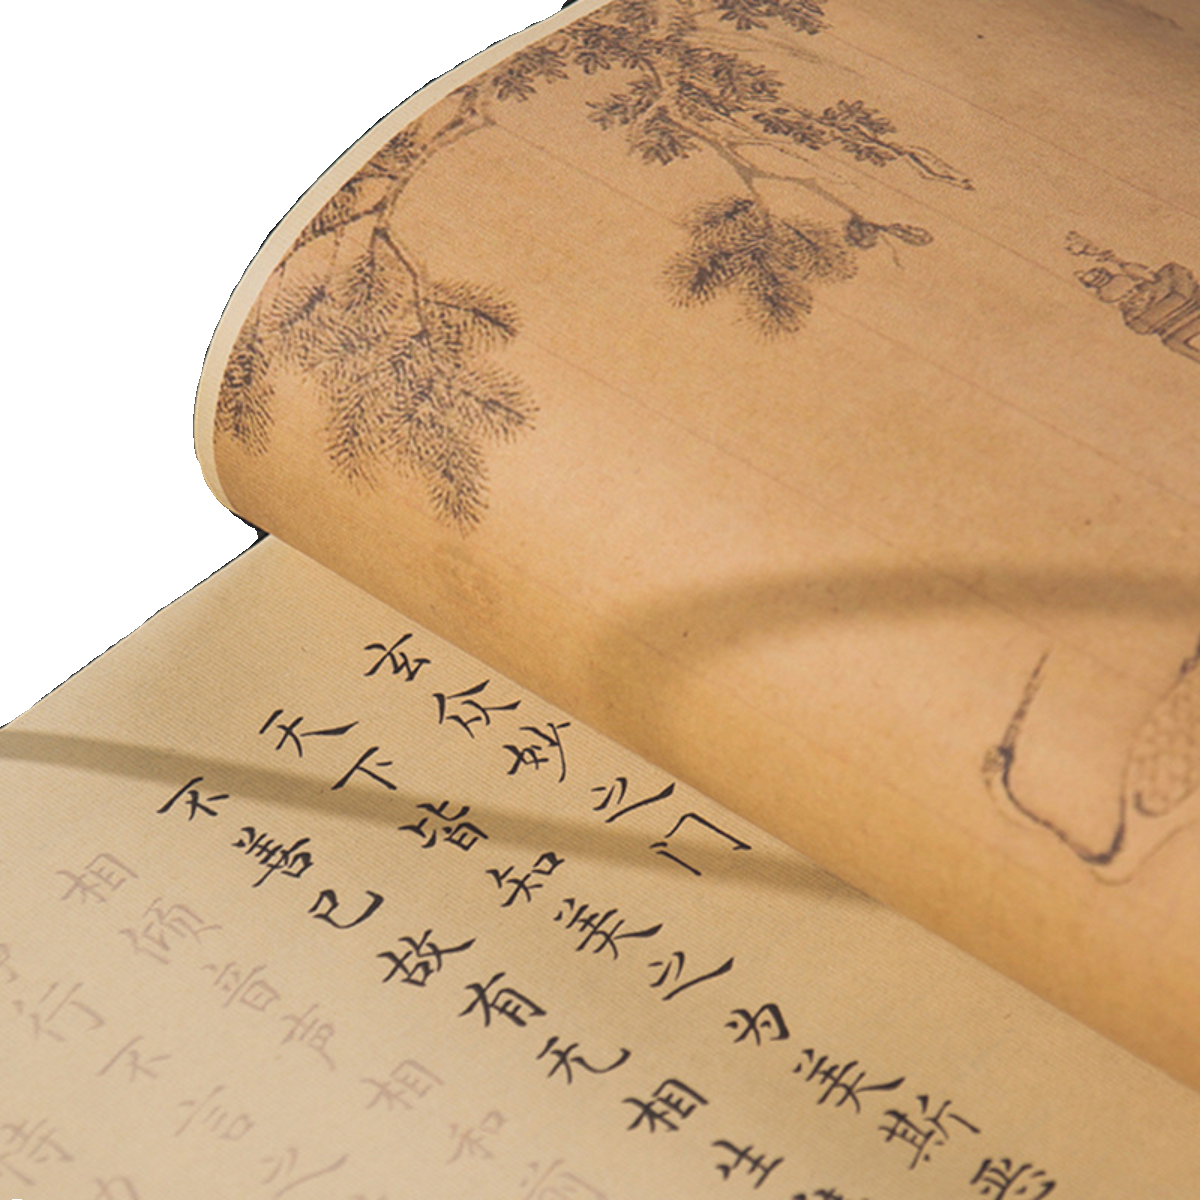 玄众妙之门
天下皆知美之为美斯恶
不善已故有无相生
相倾音声相和前
行不言之
恃